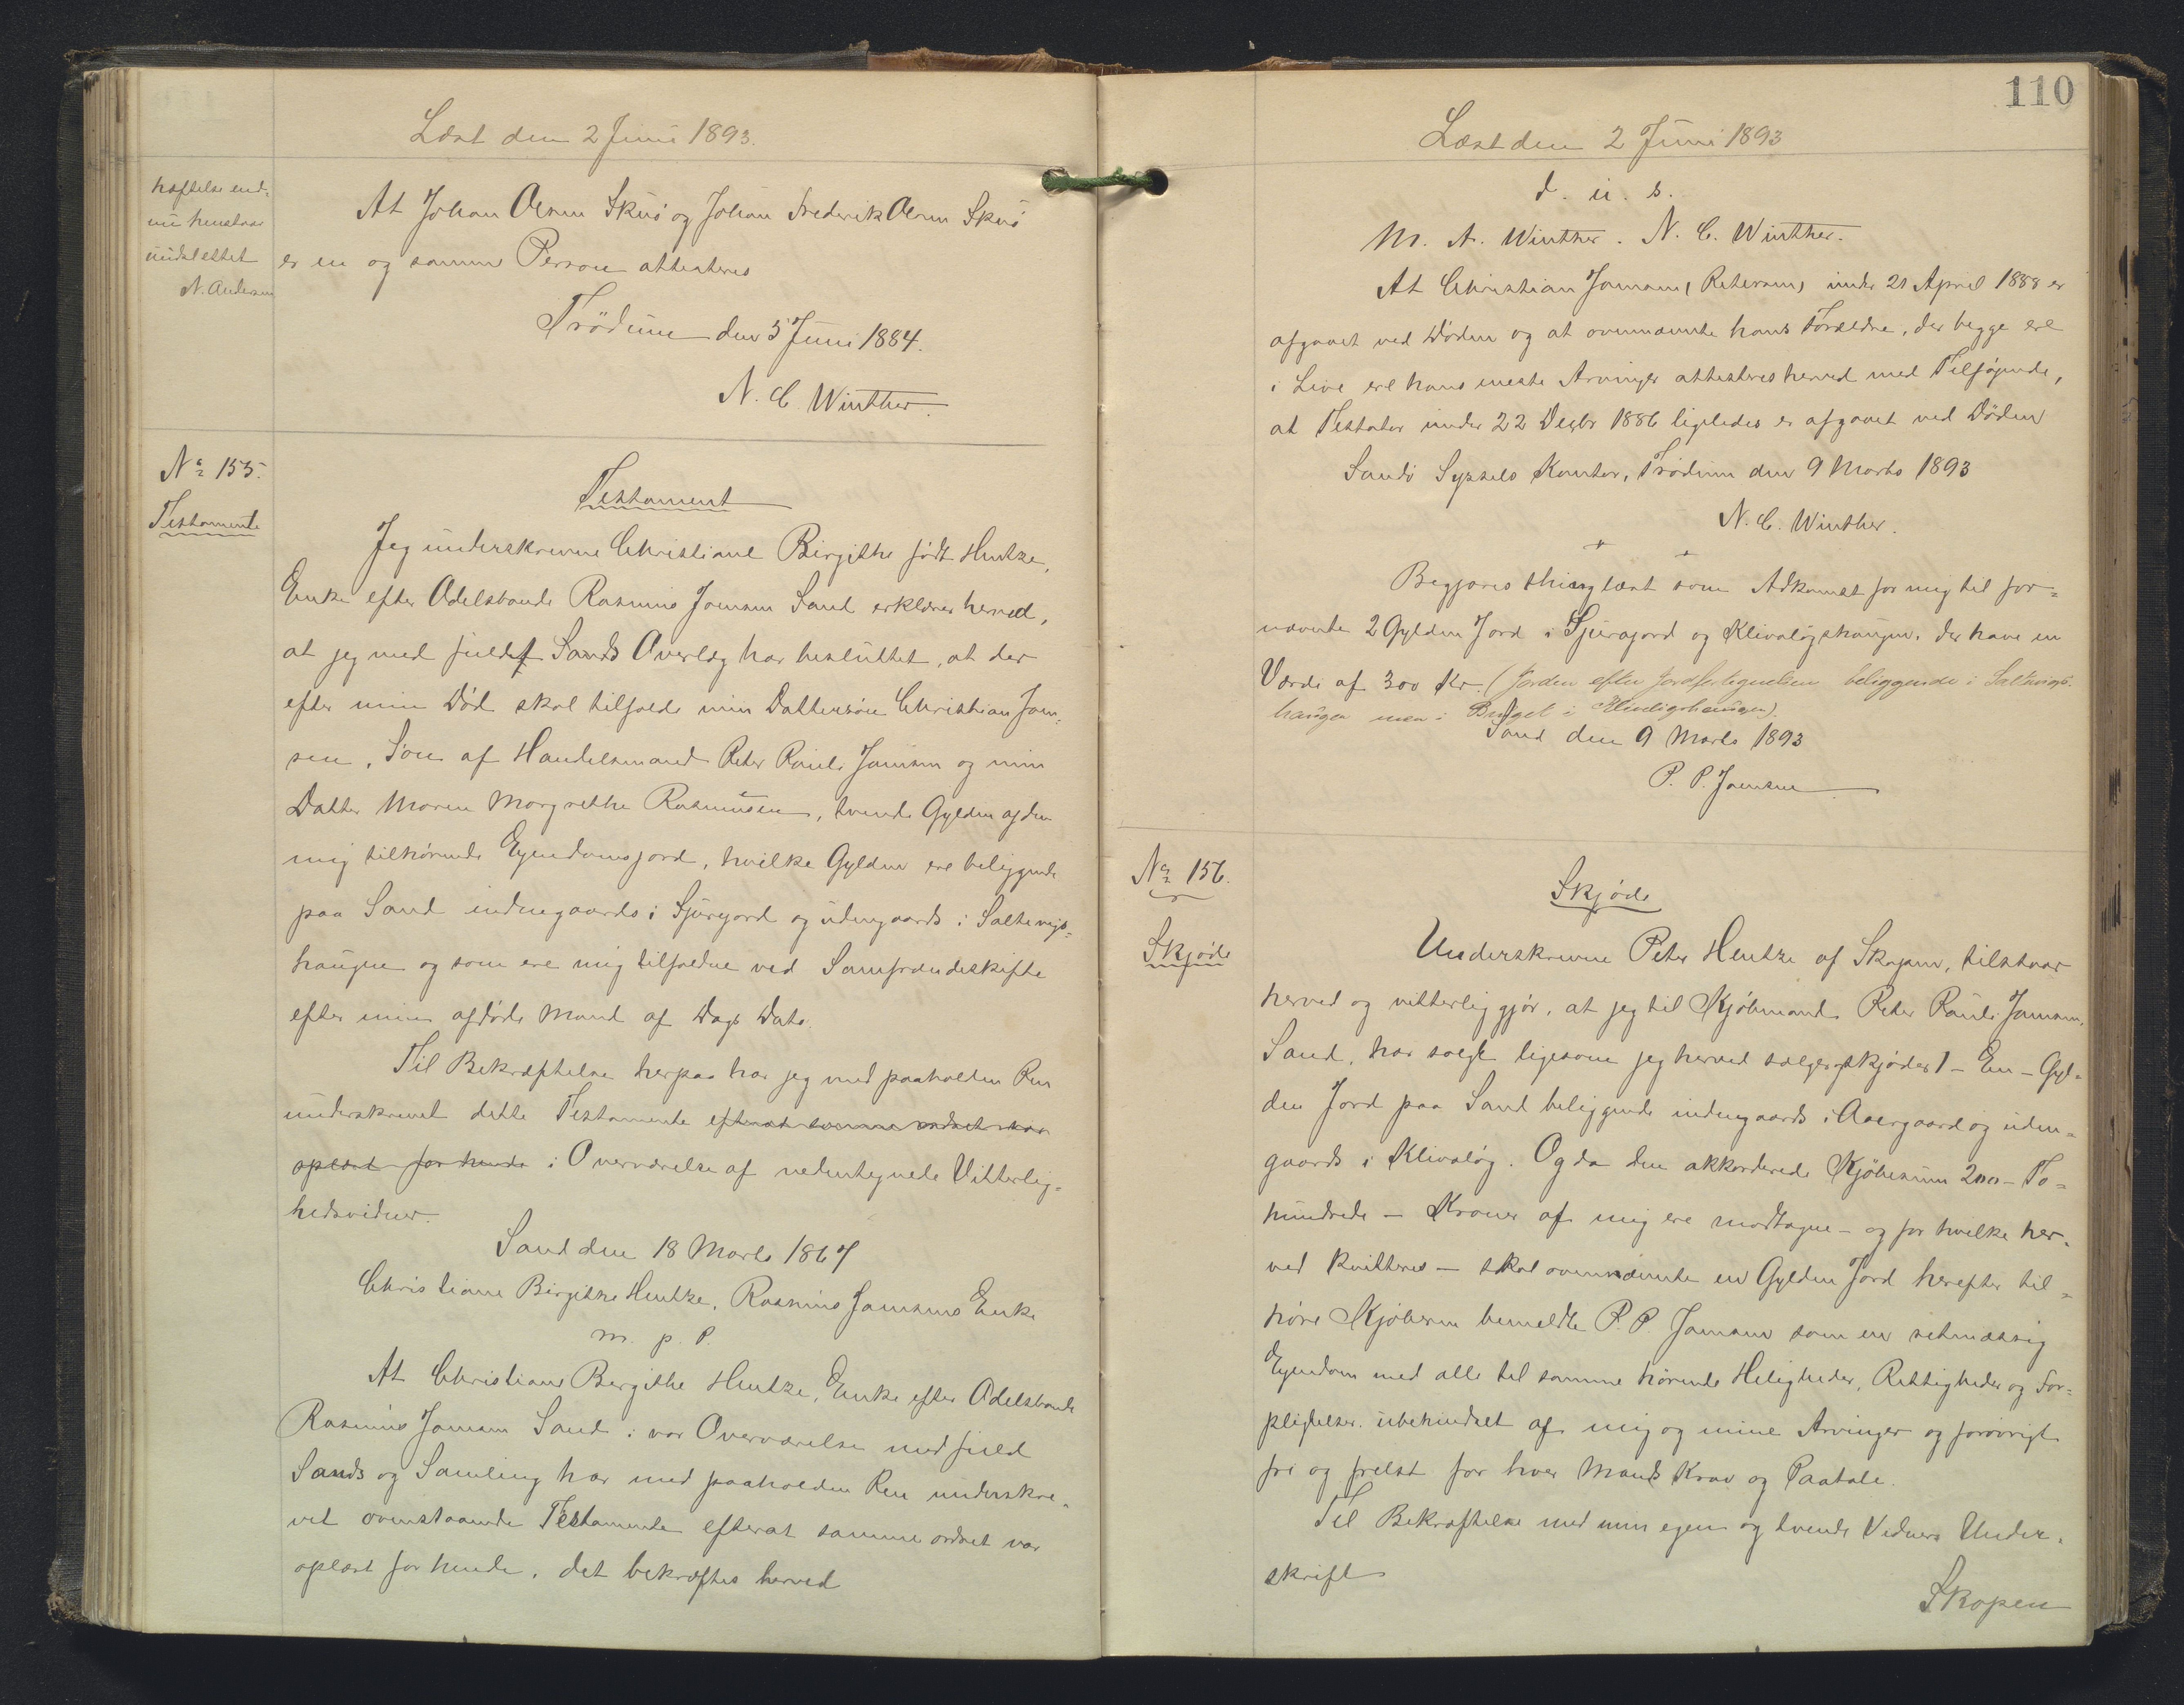 Læst den 2 Juni 1893.
hæftelse end-
nu henstaar
uudslettet
N. Andersen
At Johan Olsen Skuö og Johan Frederik Olsen Skuö
er en og samme Person attesteres
Trödum den 5 Juni 1884.
N. C. Winther.
No 155.
Testamente
Testament
Jeg underskrevne Christiane Birgithe født Hentze,
Enke efter Odelsbonde Rasmus Joensen Sand erklærer herved,
at jeg med fuld Sands Overlæg har besluttet, at der
efter min Död skal tilfalde min Dattersön Christian Joen-
sen, Sön af Handelsmand Peter Pauli Joensen og min
Datter Maren Margrethe Rasmussen, tvende Gylden af den
mig tilhörende Ejendomsjord, hvilke Gylden ere beliggende
paa Sand indengaards i Sjurgord og udengaards i Saltevigs-
haugen og som ere mig tilfaldne ved Samfrændeskifte
efter min afdöde Mand af Dags Dato.
Til Bekræftelse herpaa har jeg med paaholden Pen
underskrevet dette Testamente efterat samme ordret var
oplæst for hende i Overværelse af nedentegnede Vitterlig-
hedsvidner.
Sand den 18 Marts 1867
Christiane Birgithe Hentze, Rasmus Joensens Enke
m. p. P.
At Christiane Bergithe Hentze, Enke efter Odelsbonde
Rasmus Joensen Sand i vor Overværelse med fuld
Sands og Samling har med paaholden Pen underskre-
vet ovenstaaende Testamente efterat samme ordret var
oplæst for hende, det bekræftes herved
110
Læst den 2 Juni 1893
d. u. s.
M. A. Winther. N. C. Winther.
At Christian Joensen (Petersen) under 21 April 1888 er
afgaaet ved Döden og at ovennævnte hans Forældre, der begge ere
i Live ere hans neste Arvinger attesteres herved med Tilföjende,
at Testator under 22 Decbr 1886 ligeledes er afgaaet ved Döden
Sandö Syssels Kontor, Trödum den 9 Marts 1893
N. C. Winther.
+ +
Begjæres thinglæst som Adkomst for mig til for-
nævnte 2 Gylden Jord i Sjuragord og Klivalögshaugen, der have en
Værdi af 300 Kr. (Jorden efter Jordfortegnelsen beliggende i Saltvigs-
haugen men i Bruget i Klivligshaugen).
Sand den 9 Marts 1893
P. P. Joensen
No 156.
Skjøde
Skjøde
Underskrevne Peter Hentze af Skopen, tilstaar
herved og vitterliggjör, at jeg til Kjöbmand Peter Pauli Joensen,
Sand, har solgt ligesom jeg herved sælger og skjöder 1 - En - Gyl-
den Jord paa Sand beliggende indengaards i Aaergaard og uden-
gaards i Klivalög. Og da den akkorderede Kjöbesum 200 - To-
hundrede - Kroner af mig ere modtagne - og for hvilke her-
ved kvitteres - skal ovennævnte en Gylden Jord herefter til-
höre Kjöberen bemeldte P. P. Joensen som en retmæssig
Ejendom med alle til samme hörende Heligheder, Rettigheder og For-
pligtelser, ubehindret af mig og mine Arvinger og forövrigt
fri og frelst for hver Mands Krav og Paatale.
Til Bekræftelse med min egen og tvende Vidners Under-
skrift
Skopen